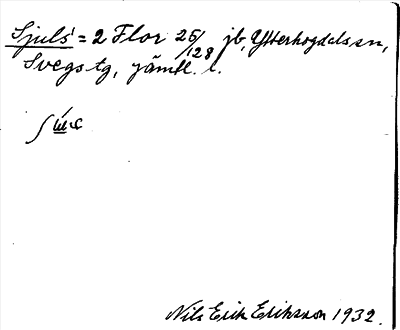 Sjuls = 2 Flor 25/128 jb, Ytterhogdals sn,
Svegs tg, jämtl. l.
Nils Erik Eriksson 1932.